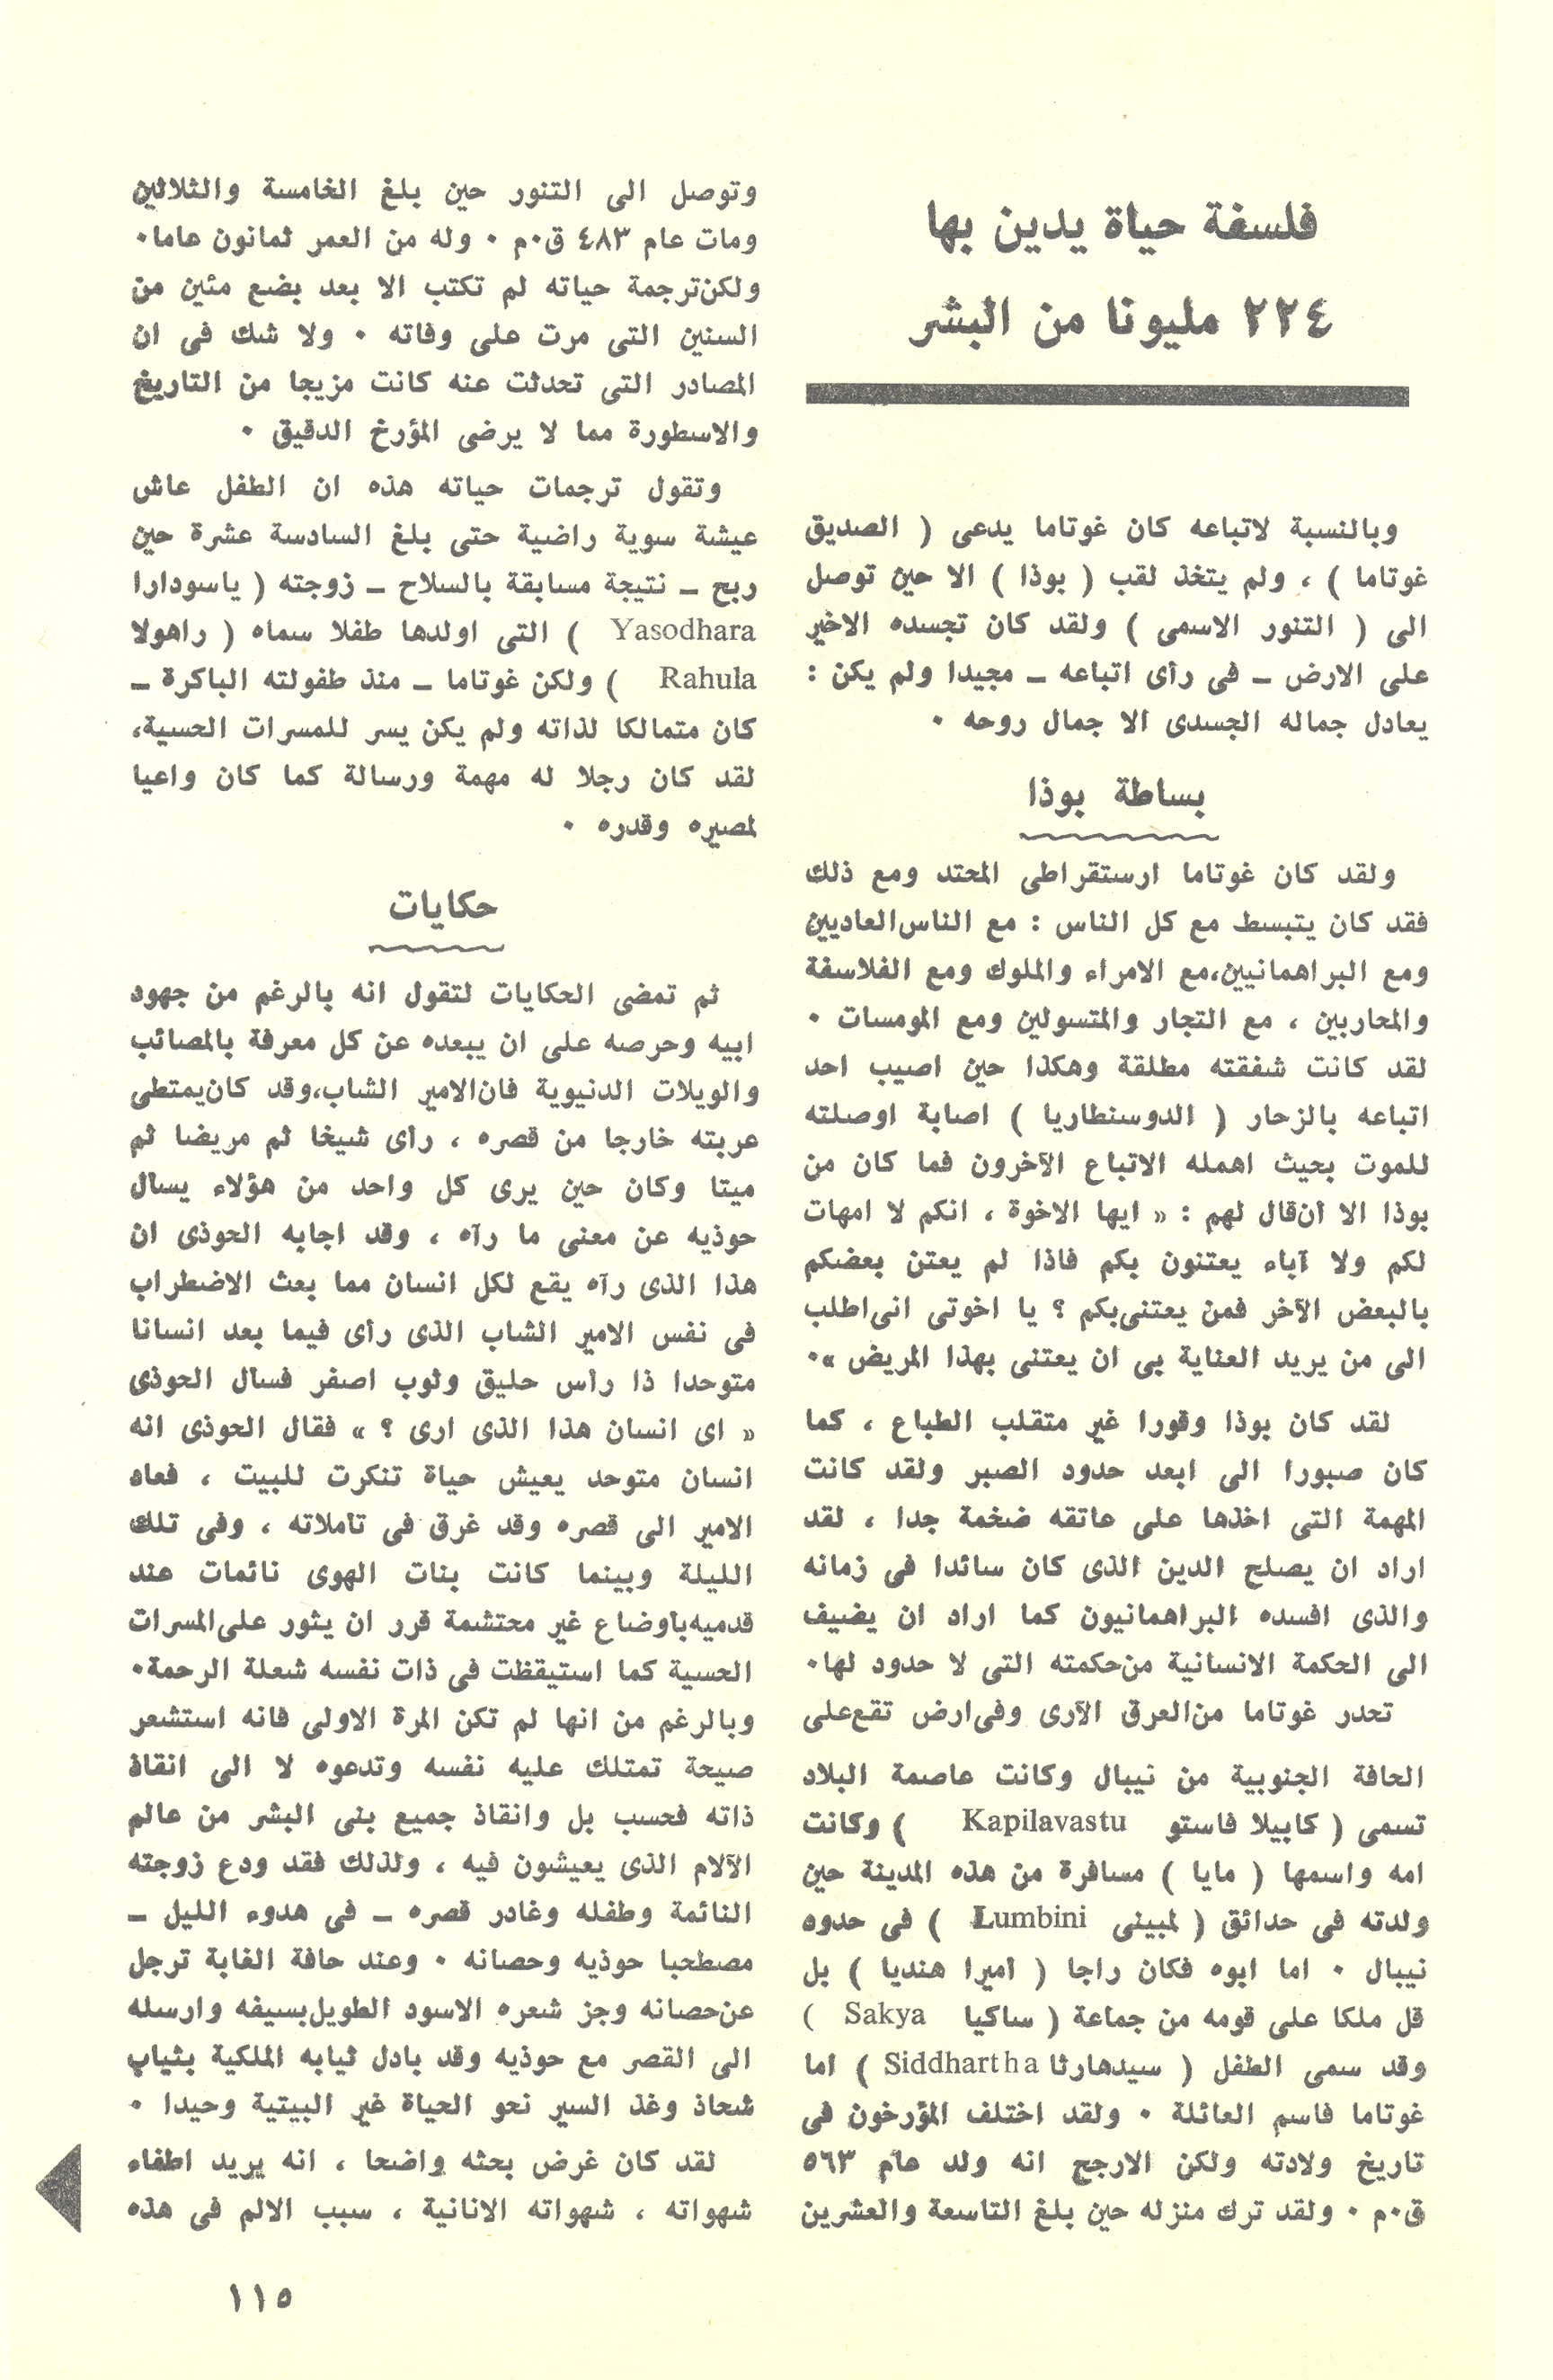 فلسفة حياة يدين بها
٢٢٤ مليونا من البشر
وبالنسبة لاتباعه كان غوتاما يدعى ( الصديق
غوتاما ) ، ولم يتخذ لقب ( بوذا ) الا حين توصل
الى ( التنور الاسمى ) ولقد كان تجسده الاخير
على الارض ـ فى رأى اتباعه ـ مجيدا ولم يكن :
يعادل جماله الجسدى الا جمال روحه ٠
بساطة بوذا
ولقد كان غوتاما ارستقراطى المحتد ومع ذلك
فقد كان يتبسط مع كل الناس : مع الناس العاديين
ومع البراهمانيين،مع الامراء والملوك ومع الفلاسفة
والمحاربين ، مع التجار والمتسولين ومع المومسات ٠
لقد كانت شفقته مطلقة وهكذا حين اصيب احد
اتباعه بالزحار ( الدوسنطاريا ) اصابة اوصلته
للموت بحيث اهمله الاتباع الآخرون فما كان من
بوذا الا أن قال لهم : « ايها الاخوة ، انكم لا امهات
لكم ولا آباء يعتنون بكم فاذا لم يعتن بعضكم
بالبعض الآخر فمن يعتنى بكم ؟ يا اخوتى انى اطلب
الى من يريد العناية بى ان يعتنى بهذا المريض »٠
لقد كان بوذا وقورا غير متقلب الطباع ، كما
كان صبورا الى ابعد حدود الصبر ولقد كانت
المهمة التى اخذها على عاتقه ضخمة جدا ، لقد
اراد ان يصلح الدين الذى كان سائدا فى زمانه
والذى افسده البراهمانيون كما اراد ان يضيف
الى الحكمة الانسانية من حكمته التى لا حدود لها٠
تحدر غوتاما من العرق الآرى وفى ارض تقع على
الحافة الجنوبية من نيبال وكانت عاصمة البلاد
تسمى ( كابيلا فاستو Kapilavastu ) وكانت
امه واسمها ( مايا ) مسافرة من هذه المدينة حين
ولدته فى حدائق ( لمبينى Lumbini ) فى حدود
نيبال ٠ اما ابوه فكان راجا ( أميرا هنديا ) بل
قل ملكا على قومه من جماعة ( ساكيا Sakya )
وقد سمى الطفل ( سيدهارثا Siddhartha ) اما
غوتاما فاسم العائلة ٠ ولقد اختلف المؤرخون فى
تاريخ ولادته ولكن الارجح انه ولد عام ٥٦٣
ق٠م ٠ ولقد ترك منزله حين بلغ التاسعة والعشرين
وتوصل الى التنور حين بلغ الخامسة والثلاثين
ومات عام ٤٨٣ ق٠م ٠ وله من العمر ثمانون عاما٠
ولكن ترجمة حياته لم تكتب الا بعد بضع مئين من
السنين التى مرت على وفاته ٠ ولا شك فى ان
المصادر التى تحدثت عنه كانت مزيجا من التاريخ
والاسطورة مما لا يرضى المؤرخ الدقيق ٠
وتقول ترجمات حياته هذه ان الطفل عاش
عيشة سوية راضية حتى بلغ السادسة عشرة حين
ربح ـ نتيجة مسابقة بالسلاح ـ زوجته ( ياسودارا
Yasodhara ) التى اولدها طفلا سماه ( راهولا
Rahula ) ولكن غوتاما ـ منذ طفولته الباكرة ـ
كان متمالكا لذاته ولم يكن يسر للمسرات الحسية،
لقد كان رجلا له مهمة ورسالة كما كان واعيا
لمصيره وقدره ٠
حكايات
ثم تمضى الحكايات لتقول انه بالرغم من جهود
ابيه وحرصه على ان يبعده عن كل معرفة بالمصائب
والويلات الدنيوية فان الامير الشاب،وقد كان يمتطى
عربته خارجا من قصره ، رأى شيخا ثم مريضا ثم
ميتا وكان حين يرى كل واحد من هؤلاء يسأل
حوذيه عن معنى ما رآه ، وقد اجابه الحوذى ان
هذا الذى رآه يقع لكل انسان مما بعث الاضطراب
فى نفس الامير الشاب الذى رأى فيما بعد انسانا
متوحدا ذا رأس حليق وثوب اصفر فسأل الحوذى
« اى انسان هذا الذى ارى ؟ » فقال الحوذى انه
انسان متوحد يعيش حياة تنكرت للبيت ، فعاد
الامير الى قصره وقد غرق فى تأملاته ، وفى تلك
الليلة وبينما كانت بنات الهوى نائمات عند
قدميه بأوضاع غير محتشمة قرر ان يثور على المسرات
الحسية كما استيقظت فى ذات نفسه شعلة الرحمة٠
وبالرغم من انها لم تكن المرة الاولى فانه استشعر
صيحة تمتلك عليه نفسه وتدعوه لا الى انقاذ
ذاته فحسب بل وانقاذ جميع بنى البشر من عالم
الآلام الذى يعيشون فيه ، ولذلك فقد ودع زوجته
النائمة وطفله وغادر قصره ـ فى هدوء الليل ـ
مصطحبا حوذيه وحصانه ٠ وعند حافة الغابة ترجل
عن حصانه وجز شعره الاسود الطويل بسيفه وارسله
الى القصر مع حوذيه وقد بادل ثيابه الملكية بثياب
شحاذ وغذ السير نحو الحياة غير البيتية وحيدا ٠
لقد كان غرض بحثه واضحا ، انه يريد اطفاء
شهواته ، شهواته الانانية ، سبب الالم فى هذه
١١٥